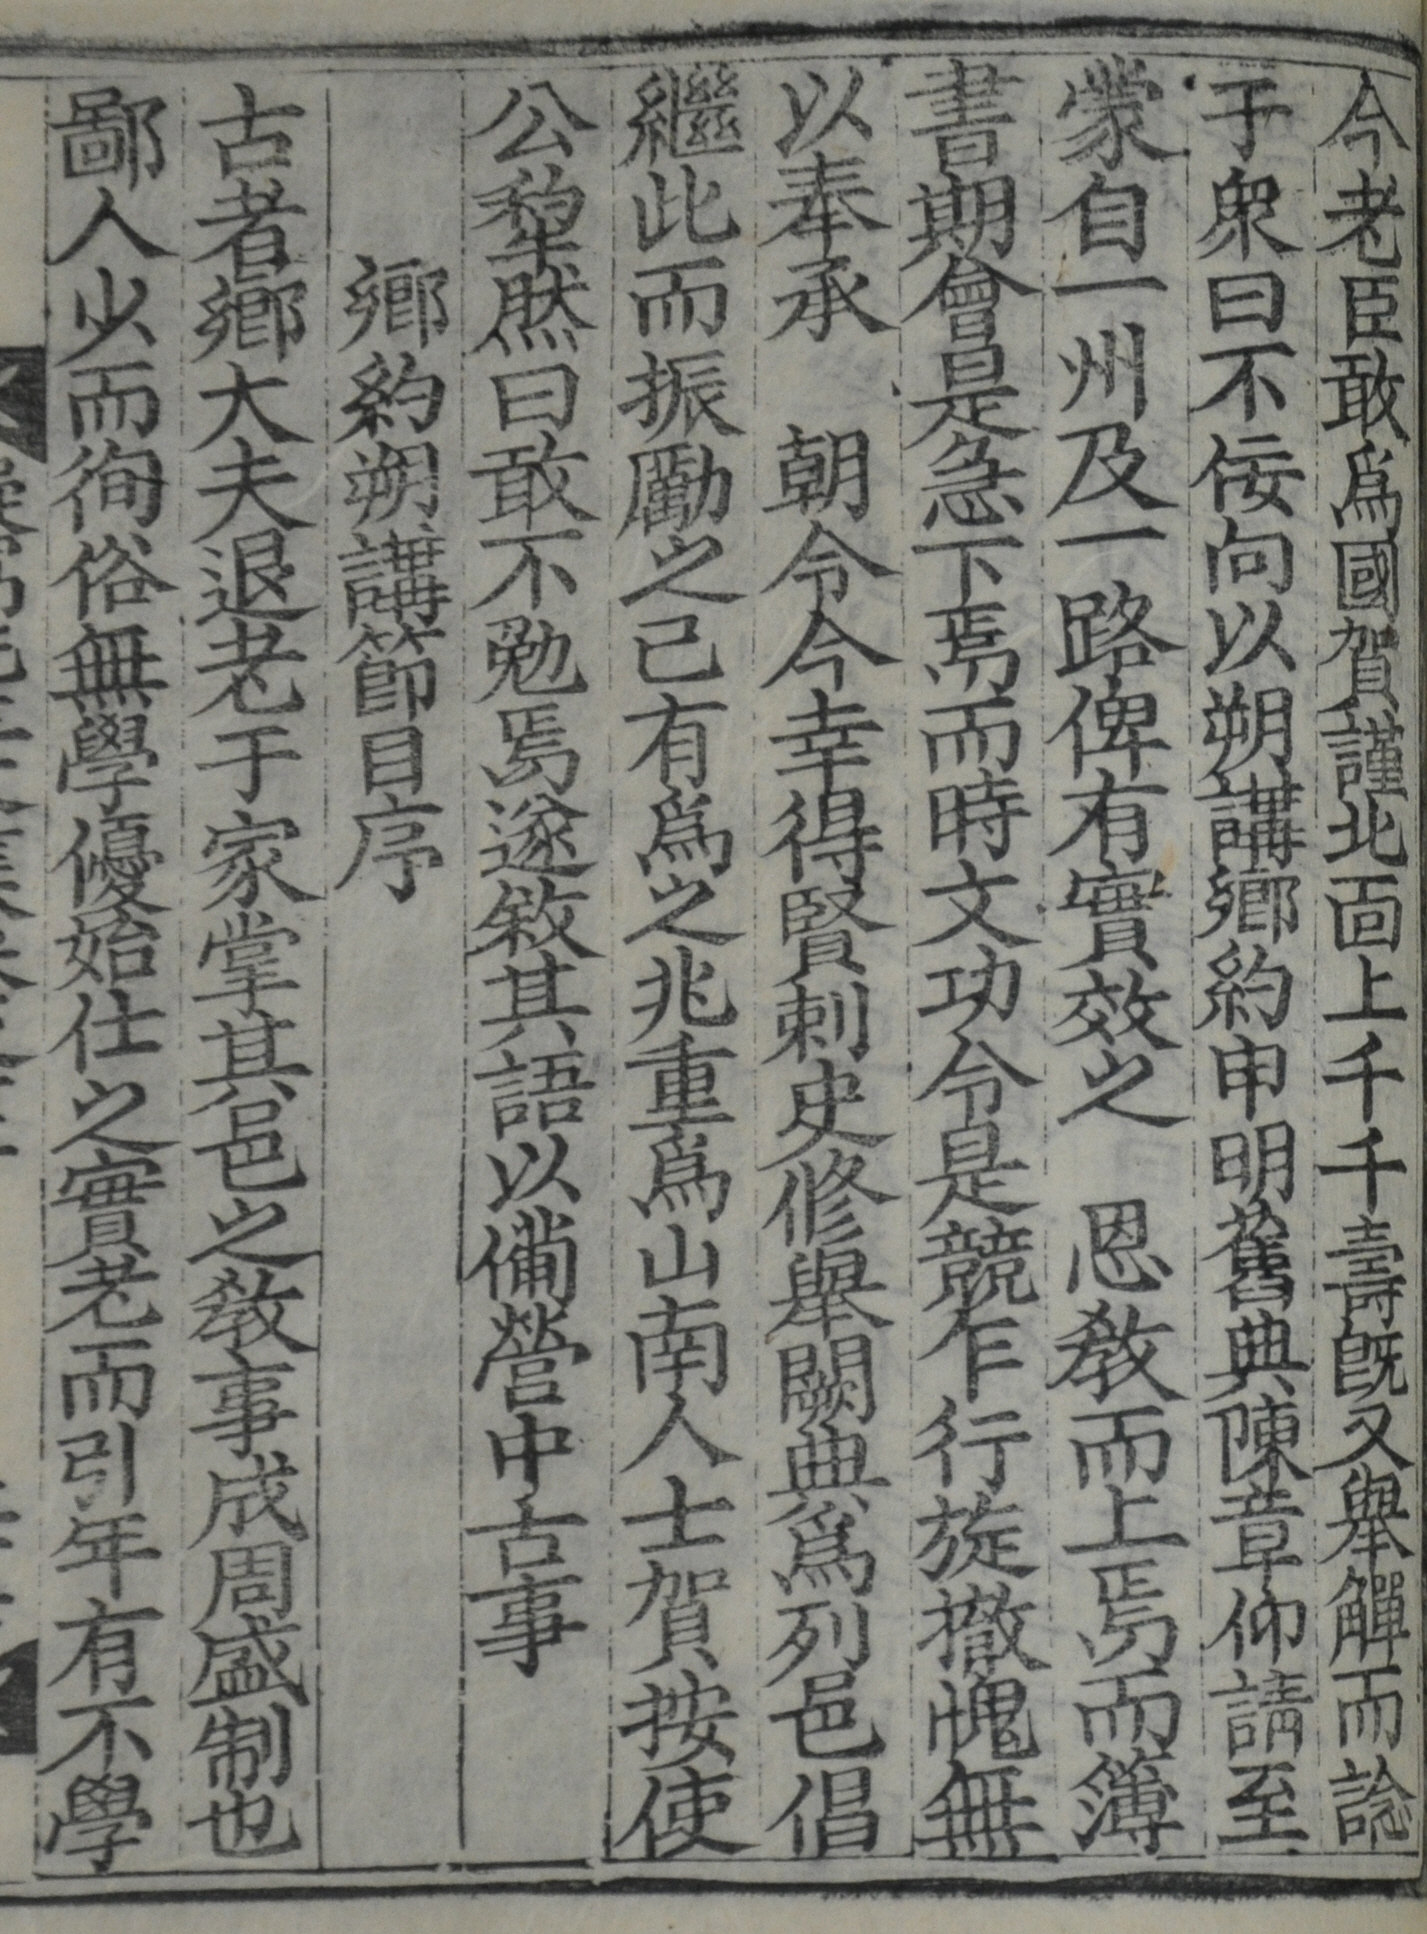 今老臣敢爲國賀謹北面上千千壽旣又擧觶而諗
于衆曰不佞向以朔講鄕約申明舊典陳章仰請至
蒙自一州及一路俾有實效之 恩敎而上焉而簿
書期會是急下焉而時文功令是競乍行旋撤愧無
以奉承 朝令今幸得賢刺史修擧闕典爲列邑倡
繼此而振勵之已有爲之兆重爲山南人士賀按使
公犂然曰敢不勉焉遂敘其語以備營中古事
鄕約朔講節目序
古者鄕大夫退老于家掌其邑之敎事成周盛制也
鄙人少而徇俗無學優始仕之實老而引年有不學